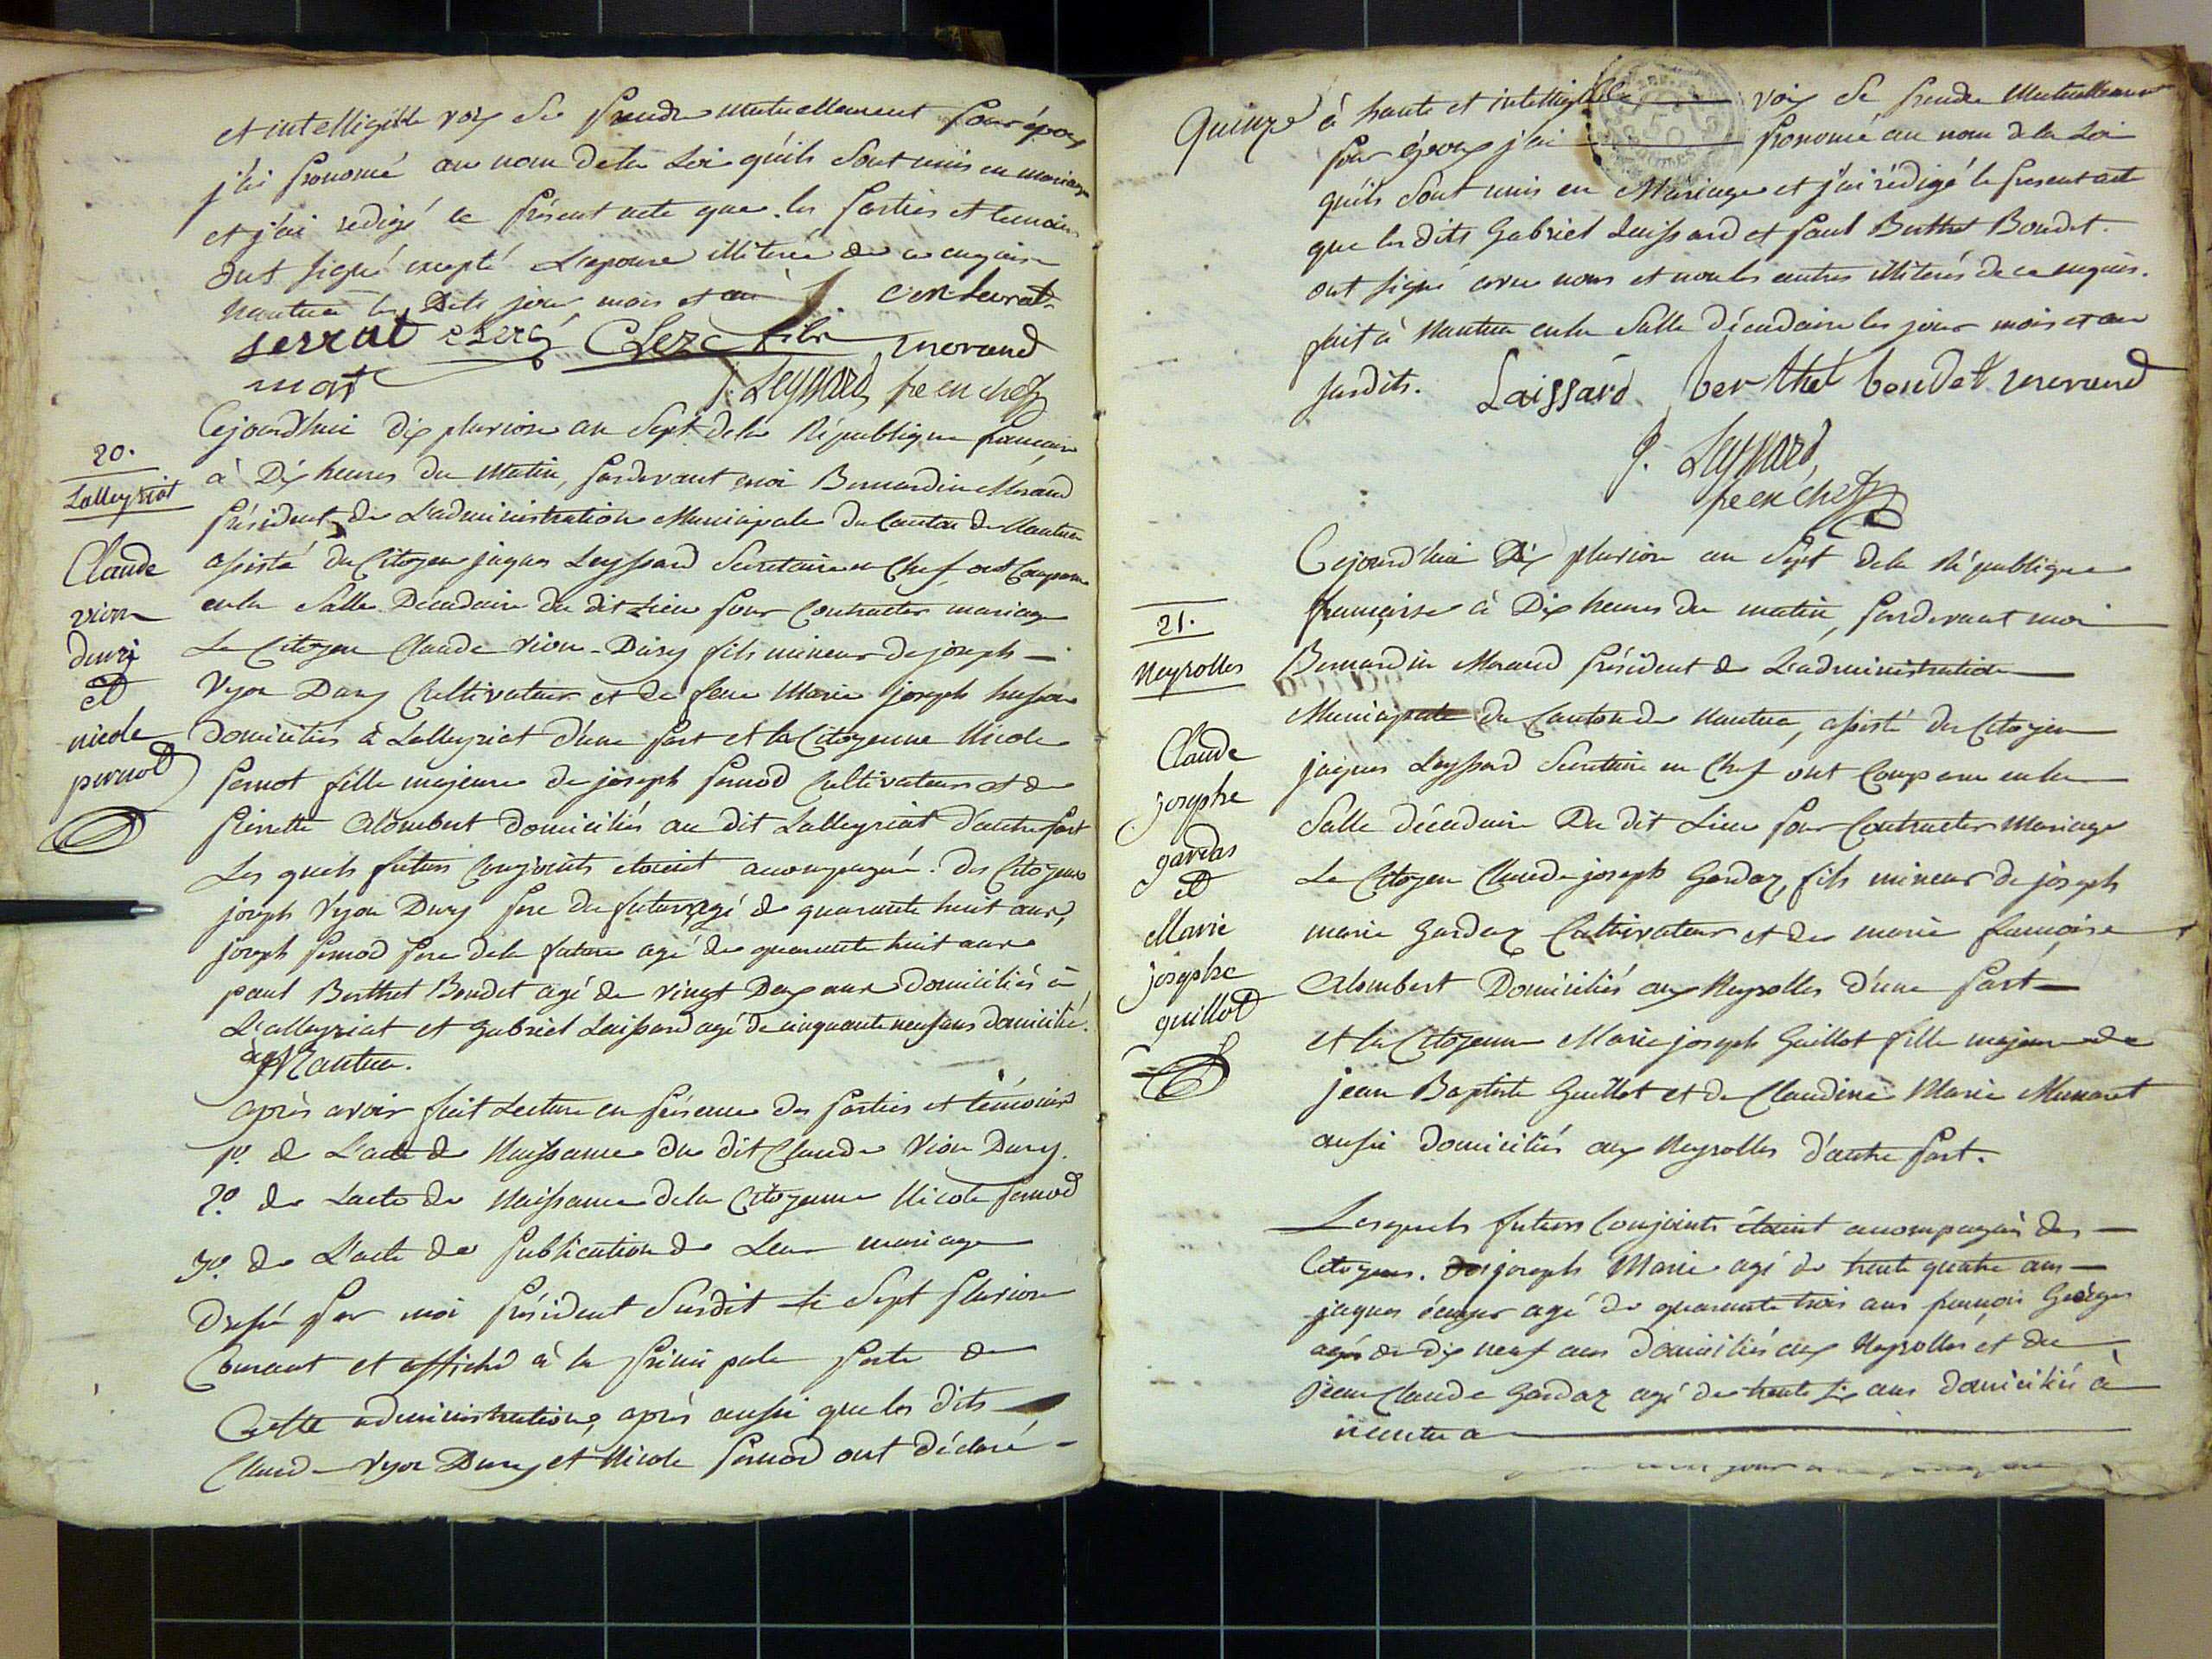 et intelligible voix de prendre mutuellement pour époux
j'ai prononcé au nom de la Loi qu'ils sont unis en mariage
et j'ai redigé le présent acte que les parties et temoins
ont signé excepté L'epouse illiterée de ce enquise
nantua les Dits jour, mois et an
serrat clerc Clerc fils morand
mat J. Leyssard sre en chef
20.
Lalleyriat
Claude
vion
duri
et
nicole
pernod
Cejourd'hui dix pluviose an Sept de la République francaise
à Dix heures du Matin, pardevant moi Bernardin Morand
président de L'administration Municipale du Canton de Nantua
assisté du Citoyen jaques Leyssard Secretaire en Chef ont Comparu
en la Salle Décadaire du dit Lieu pour Contracter mariage
Le Citoyen Claude Vion-Dury fils mineur de joseph
Vyon Dury Cultivateur et de feue Marie joseph husson
domiciliés à Lalleyriat d'une part et la Citoyenne Nicole
pernot fille majeure de joseph pernod Cultivateur et de
pierrette Alombert domiciliés au dit Lalleyriat d'autre part
Les quels futurs Conjoints etoient accompagné des Citoyens
joseph Vyon Dury pere du futur agé de quarante huit ans,
joseph pernod pere de la future agé de quarante huit ans
paul Berthet Bondet agé de vingt Deux ans Domiciliés à
Lalleyriat et Gabriel Laissard agé de cinquante neuf ans domicilié
à Nantua.
après avoir fait Lecture en présence des parties et témoins
1º. de L'acte de Naissance du dit Claude Vion Dury.
2º. de Lacte de Naissance de la Citoyenne Nicole pernod
3º. de L'acte de publication de Leur mariage
Dressé par moi président Susdit le Sept pluviose
Courant et affiché à la principale porte de
Cette administration, après aussi que les dits
Claude Vyon Dury et Nicole pernod ont déclaré
Quinze
à haute et intelligible voix de prendre Mutuellement
pour époux j'ai prononcé au nom de la Loi
qu'ils sont unis en Mariage et j'ai rédigé le present acte
que les dits Gabriel Laissard et paul Berthet Bondet.
ont signé avec nous et non les autres illiterés de ce enquis.
fait à Nantua en la Salle décadaire les jour mois et an
susdits. Laissard berthet bondet morand
J. Leyssard,
sre en chef
21.
Neyrolles
Claude
josephe
gardas
et
Marie
josephe
guillot
Cejourd'hui Dix pluviose an Sept de la République
française à Dix heures du matin, pardevant moi
Bernardin Morand président de L'administration
Municipale du Canton de Nantua, assisté du Citoyen
jaques Leyssard Secretaire en Chef ont Comparu en la
Salle décadaire Du dit Lieu pour Contracter Mariage
Le Citoyen Claude joseph Gardaz, fils mineur de joseph
marie Gardaz Cultivateur et de marie françoise
Alombert Domiciliés aux Neyrolles d'une part
et la Citoyenne Marie joseph Guillot fille majeure de
jean Baptiste Guillot et de Claudine Marie Munaret
aussi domiciliés aux Neyrolles d'autre part.
Lesquels futurs Conjoints étaint accompagnés des
Citoyens. joseph Marie agé de trente quatre ans
jaques agé de quarante trois ans françois Goiges
agé de dix neuf ans domiciliés aux Neyrolles et de
jean Claude Gardaz agé de trente six ans domicilié à
nantua